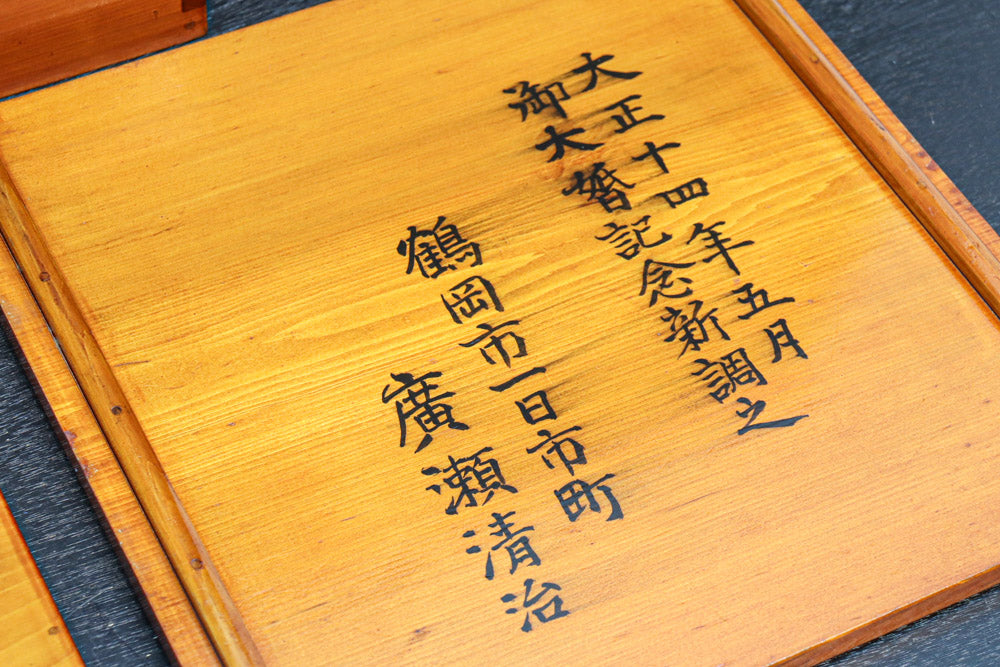 大正十四年五月
御大婚記念新調之
鶴岡市一日市町
廣瀬清治